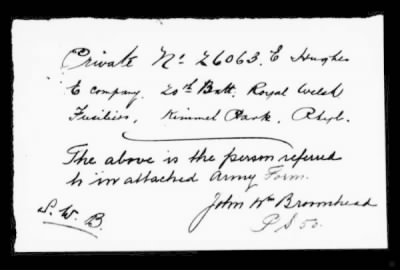 Private No 26063. E Hughes
E company. 20th Batt. Royal Welsh
Fusiliers, Kinmel Park, Rhyl.
The above is the person referred
to in attached Army Form.
S. W. B.
John Wm Broomhead
P S 50.